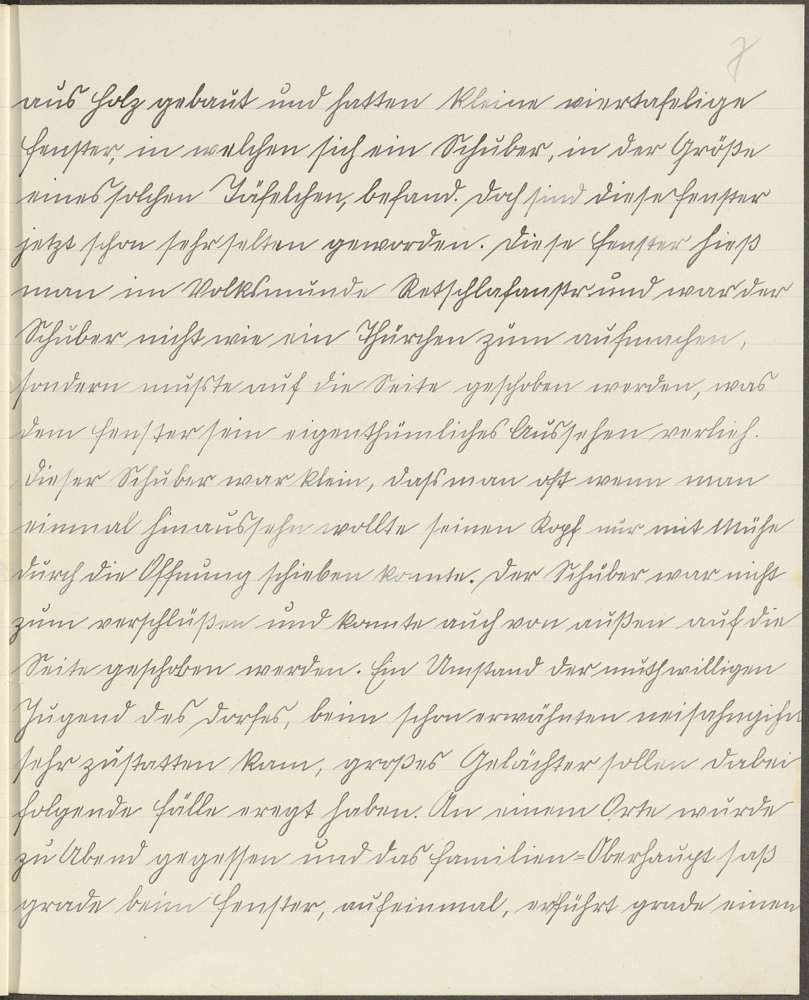 7
aus Holz gebaut und hatten kleine viertafelige
Fenster, in welchen sich ein Schuber, in der Größe
eines solchen Täfelchen, befand. Doch sind diese Fenster
jetzt schon sehr selten geworden. Diese Fenster hieß
man im Volksmunde Retschlafanstr und war der
Schuber nicht wie ein Thürchen zum aufmachen,
sondern mußte auf die Seite geschoben werden, was
dem Fenster sein eigenthümliches Aussehen verlieh.
Dieser Schuber war klein, dass man oft wenn man
einmal hinaussehn wollte seinen Kopf nur mit Mühe
durch die Öffnung schieben konnte. Der Schuber war nicht
zum verschlüßen und konnte auch von außen auf die
Seite geschoben werden. Ein Umstand der muthwilligen
Jugend des Dorfes, beim schon erwähnten
sehr zustatten kam, großes Gelächter sollen dabei
folgende Fälle eregt haben. An einem Orte wurde
zu Abend gegessen und das Familien=Oberhaupt saß
grade beim Fenster, aufeinmal, erführt grade einen